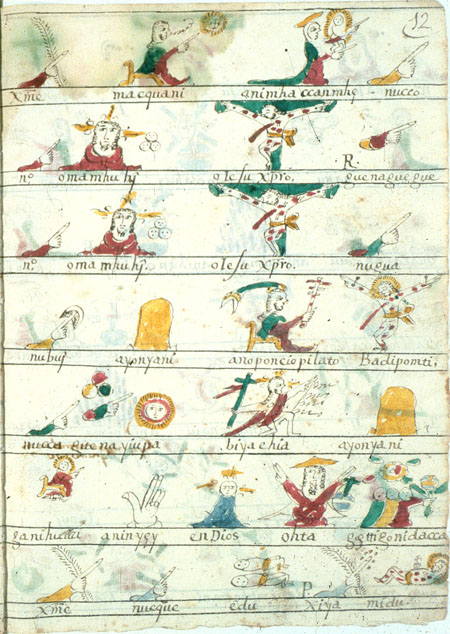 12
Xm̃e macquani animhaccanmhẹ nucco
nọ omamhuhị otesu Xpro. R. guenaguegue
nọ omamhuhị. otesu Xpro. nugua
nubuȷ ayonyani anoponciopilato Badiponti,
nucca guenayiupa biyaehia ayonyani
aninyẹy enDios ohta
Xm̃e nueque edu P. Xiya midu.